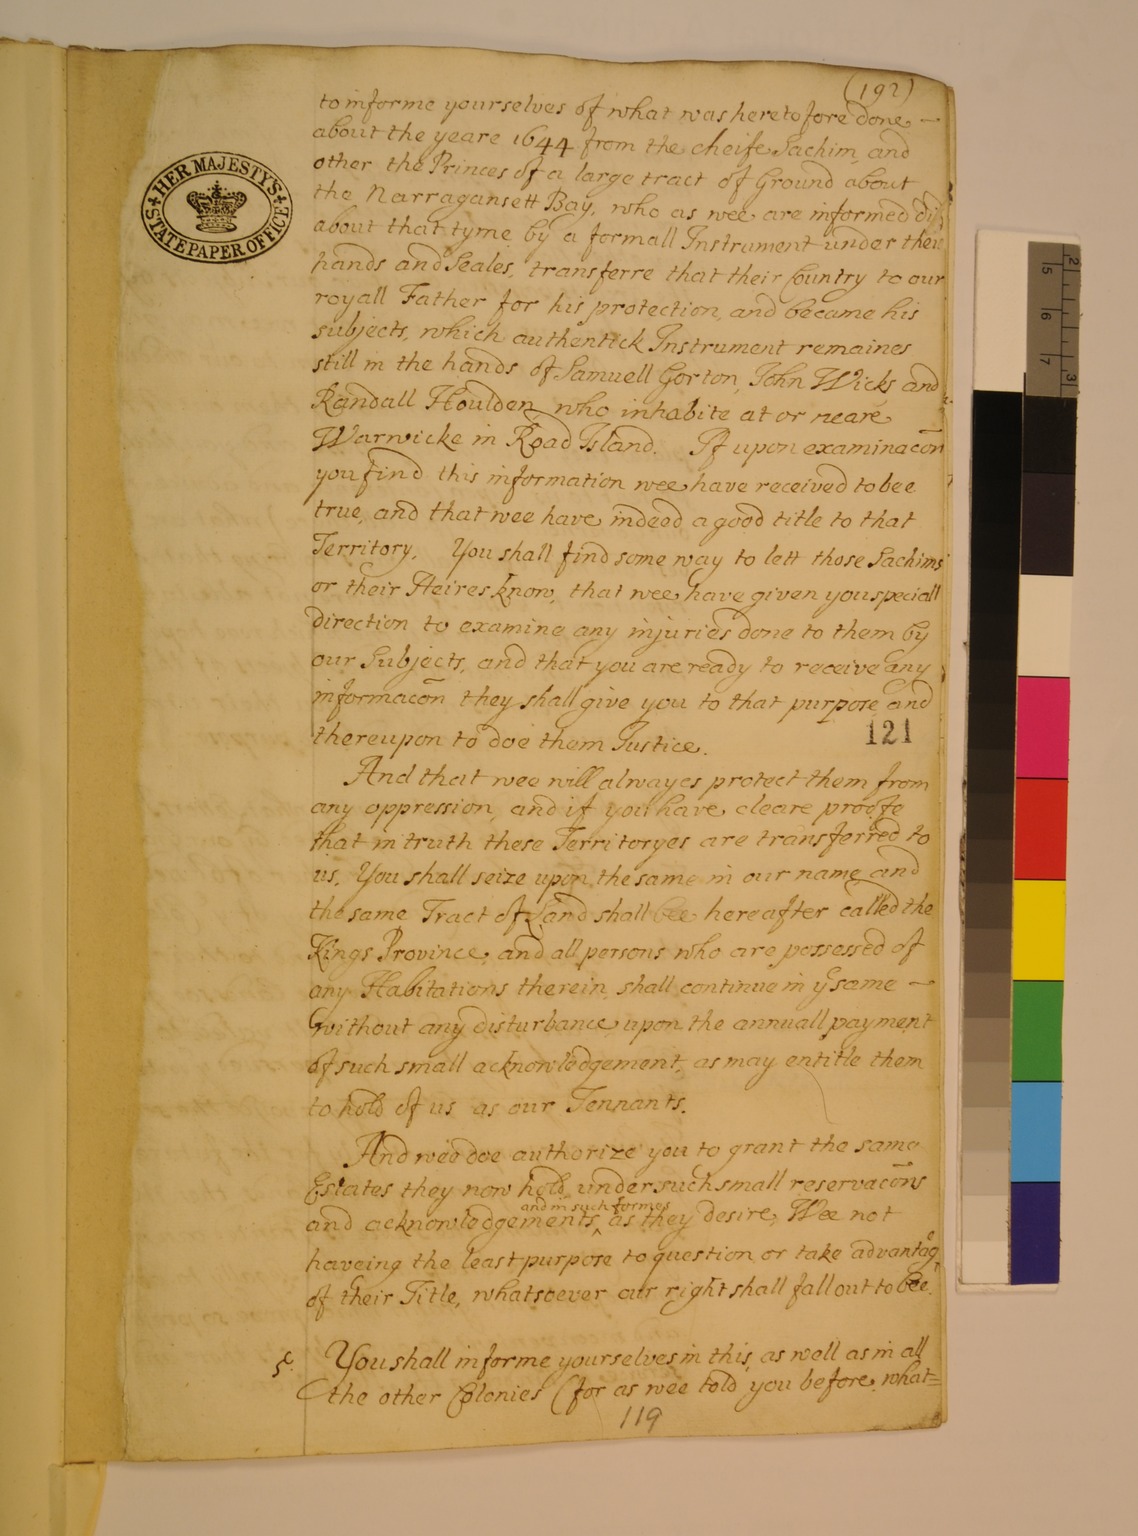 (192)
to informe yourselves of what was heretofore done
about the yeare 1644 from the cheife Sachim, and
other the Princes of a large tract of Ground about
the Narragansett Bay, who as wee are informed did
about that tyme by a formall Instrument under their
hands and Seales, transferre that their Country to our
royall Father for his protection, and became his
subjects, which authentick Instrument remaines
still in the hands of Samuell Gorton, John Wicks and
Randall Houlden, who inhabite at or neare
Warwicke in Road Island. If upon examinacõn
you find this information wee have received to bee
true, and that wee have indeed a good title to that
Territory, You shall find some way to lett those Sachims
or their Heires know, that wee have given you speciall
direction to examine any injuries done to them by
our Subjects, and that you are ready to receive any
informacõn they shall give you to that purpose and
thereupon to doe them Justice.
121
And that wee will alwayes protect them from
any oppression, and if you have cleare proofe
that in truth these Territoryes are transferred to
us, You shall seize upon the same in our name, and
the same Tract of Land shall bee hereafter called the
Kings Province, and all persons who are possessed of
any Habitations therein, shall continue in ye same
without any disturbance, upon the annuall payment
of such small acknowledgement, as may entitle them
to hold of us as our Tennants.
And wee doe authorize you to grant the same
Estates they now hold, under such small reservacõns
and in such formes
and acknowledgements ^ as they desire, Wee not
haveing the least purpose to question or take advantag
of their Title, whatsoever our right shall fall out to bee.
5.
You shall informe yourselves in this, as well as in all
the other Colonies (for as wee told you before, what=
119
HER MAJESTY'S
STATE PAPER OFFICE
5
6
7
2
3